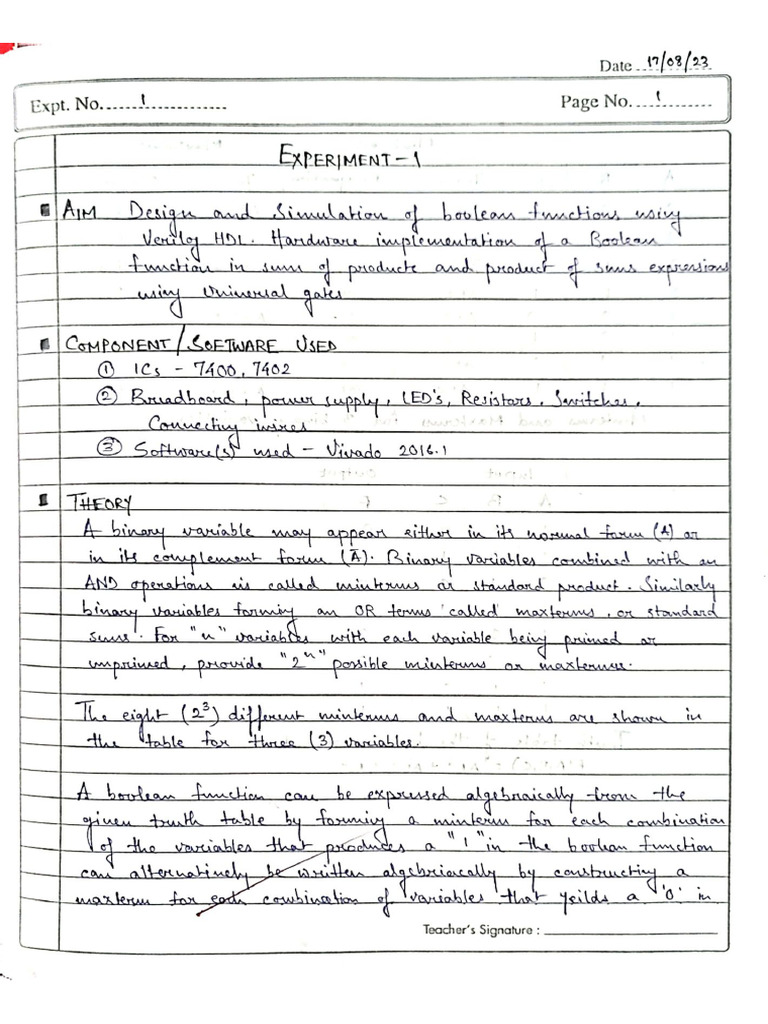 Date 17/08/23
Expt. No. 1
Page No. 1
EXPERIMENT-1
AIM Design and Simulation of boolean functions using
Verilog HDL. Hardware implementation of a Boolean
function in sum of products and product of sums expressions
using Universal gates
COMPONENT/SOFTWARE USED
① ICs - 7400, 7402
② Breadboard, power supply, LED's, Resistors, Switches,
Connecting wires
③ Software(s) used - Vivado 2016.1
THEORY
A binary variable may appear either in its normal form (A) or
in its complement form (Ā). Binary variables combined with an
AND operations is called minterms or standard product. Similarly
binary variables forming an OR terms called maxterms, or standard
sums. For "n" variables with each variable being primed or
unprimed, provide "2ⁿ" possible minterms or maxterms.
The eight (2³) different minterms and maxterms are shown in
the table for three (3) variables.
A boolean function can be expressed algebraically from the
given truth table by forming a minterm for each combination
of the variables that produces a "1" in the boolean function
can alternatinely be written algebriacally by constructing a
maxterm for each combination of variables that yeilds a '0' in
Teacher's Signature :